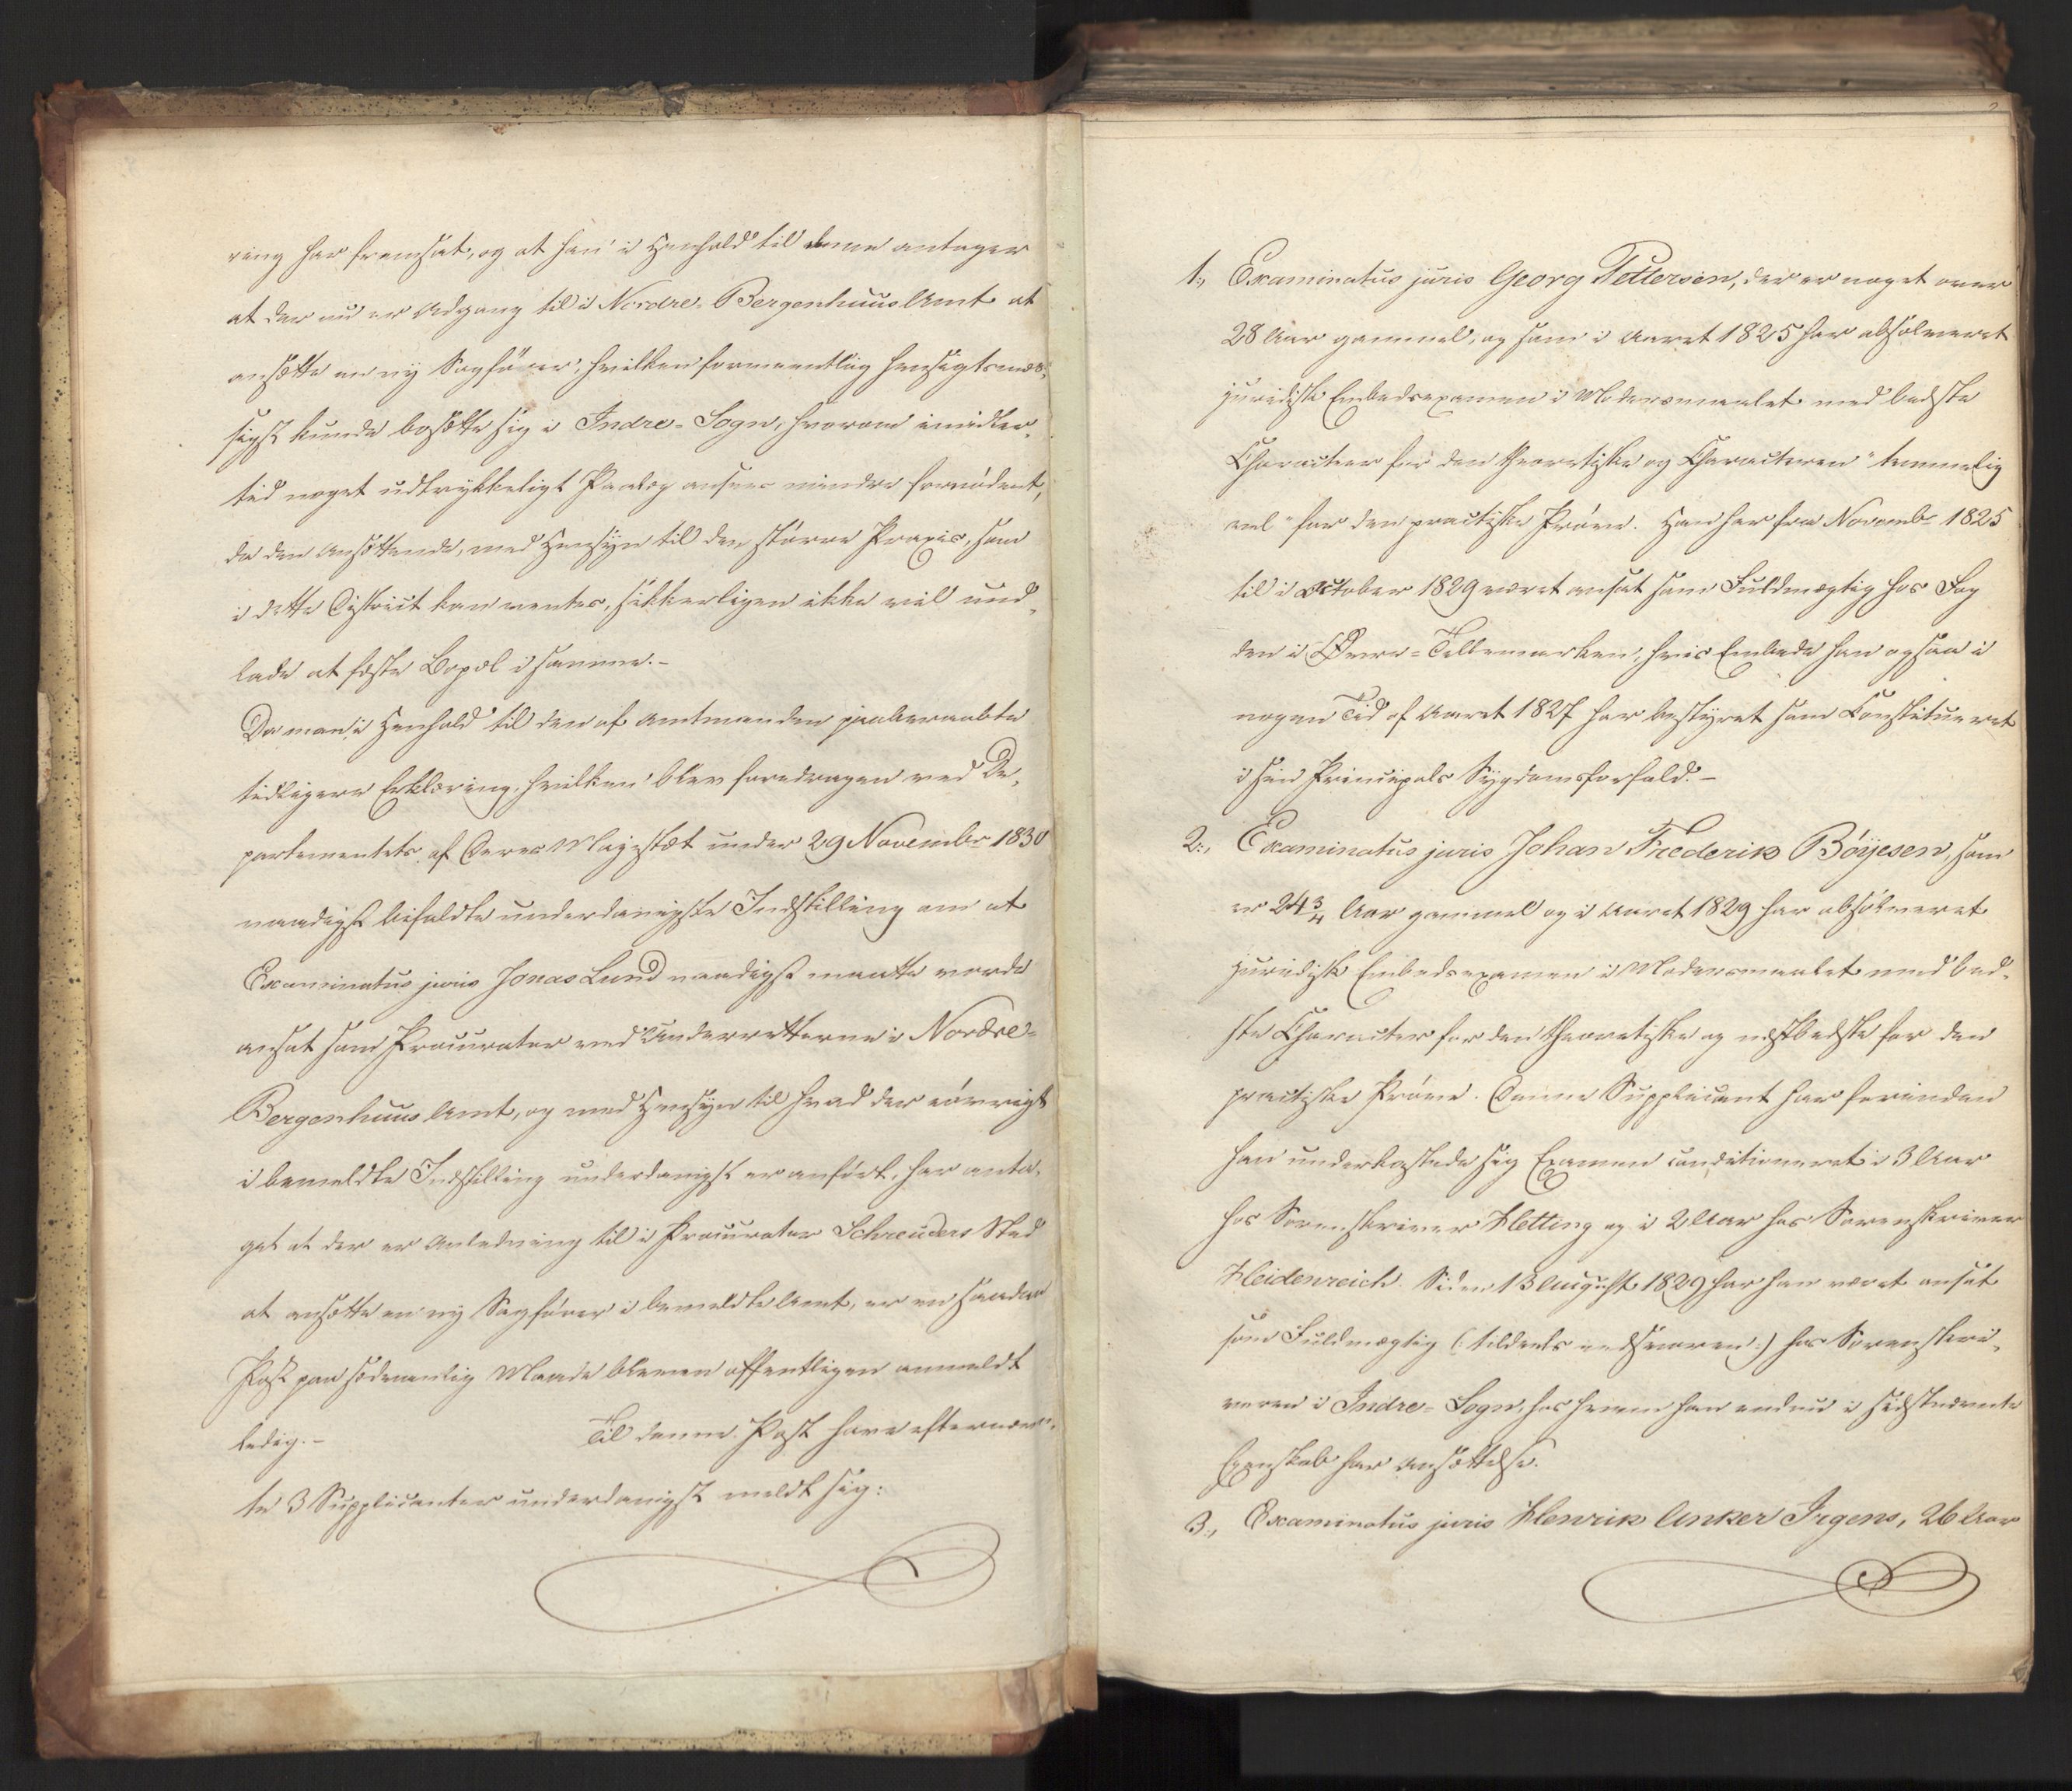 ring har fremsat, og at han i Henhold til denne antager
at der nu er Adgang til i Nordre-Bergenhuus Amt at
ansætte en ny Sagfører, hvilken formeentlig hensigtsmæs-
sigst kunde bosætte sig i Indre-Sogn, hvorom imidler-
tid noget udtrykkeligt Paalæg ansees mindre fornødent,
da den Ansættende, med Hensyn til den større Praxis, som
i dette District kan ventes, sikkerligen ikke vil und-
lade at fæste Bopæl i samme.-
Da man i Henhold til den af Amtmanden paaberaabte
tidligere Erklæring, hvilken blev foredragen ved De-
partementets af Deres Majestæt under 29 Novembr 1830
naadigst bifaldte underdanigste Indstilling om at
Examinatus juris Jonas Lund naadigst maatte vorde
ansat som Procurator ved Underretterne i Nordre-
Bergenhuus Amt, og med Hensyn til hvad der iøvrigt
i bemeldte Indstilling underdanigst er anført, har anta-
get at der er Anledning til i Procurator Schreuders Sted
at ansætte en ny Sagfører i bemeldte Amt, er en saadan
Post paa sædvanlig Maade bleven offentligen anmeldt
ledig.- Til denne Post have efternævn-
te 3 Supplicanter underdanigst meldt sig:
2
1., Examinatus juris Georg Pettersen, der er noget over
28 Aar gammel, og som i Aaret 1825 har absolveret
juridisk Embedsexamen i Modersmaalet med bedste
Characteer for den theoretiske og Characteren "temmelig
vel" for den practiske Prøve. Han har fra Novembr 1825
til i October 1829 været ansat som Fuldmægtig hos Fog
den i Øvre-Tellemarken, hvis Embede han ogsaa i
nogen Tid af Aaret 1827 har bestyret som Constitueret
i sin Principals Sygdomsforfald.-
2., Examinatus juris Johan Frederik Böyesen, som
er 24 3/4 Aar gammel og i Aaret 1829 har absolveret
juridisk Embedsexamen i Modersmaalet med bed-
ste Character for den theoretiske og næstbedste for den
practiske Prøve. Denne Supplicant har forinden
han underkastede sig Examen conditioneret i 3 Aar
hos Sorenskriver Hetting og i 2 Aar hos Sorenskriver
Heidenreich. Siden 13 August 1829 har han været ansat
som Fuldmægtig (: tildeels edsvoren :) hos Sorenskri-
veren i Indre-Sogn, hos hvem han endnu i sidstnævnte
Egenskab har Ansættelse.
3., Examinatus juris Henrik Anker Irgens, 26 Aar